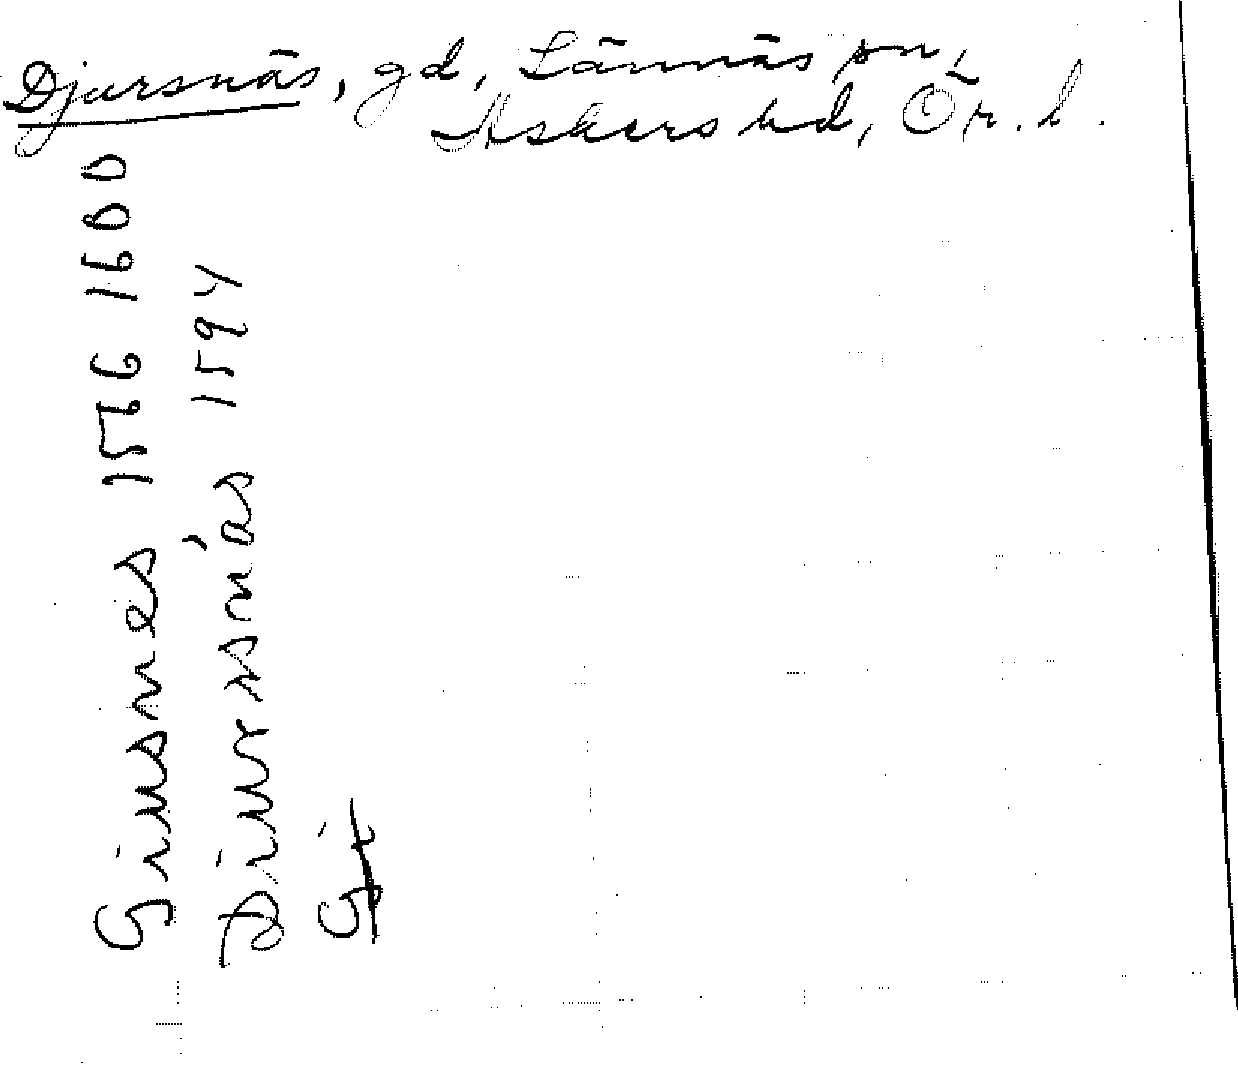 Djursnäs, gd, Lännäs sn,
Askers hd, Ör. l.
Giusnes 1566 1600
Diurssnäs 1594
Gi